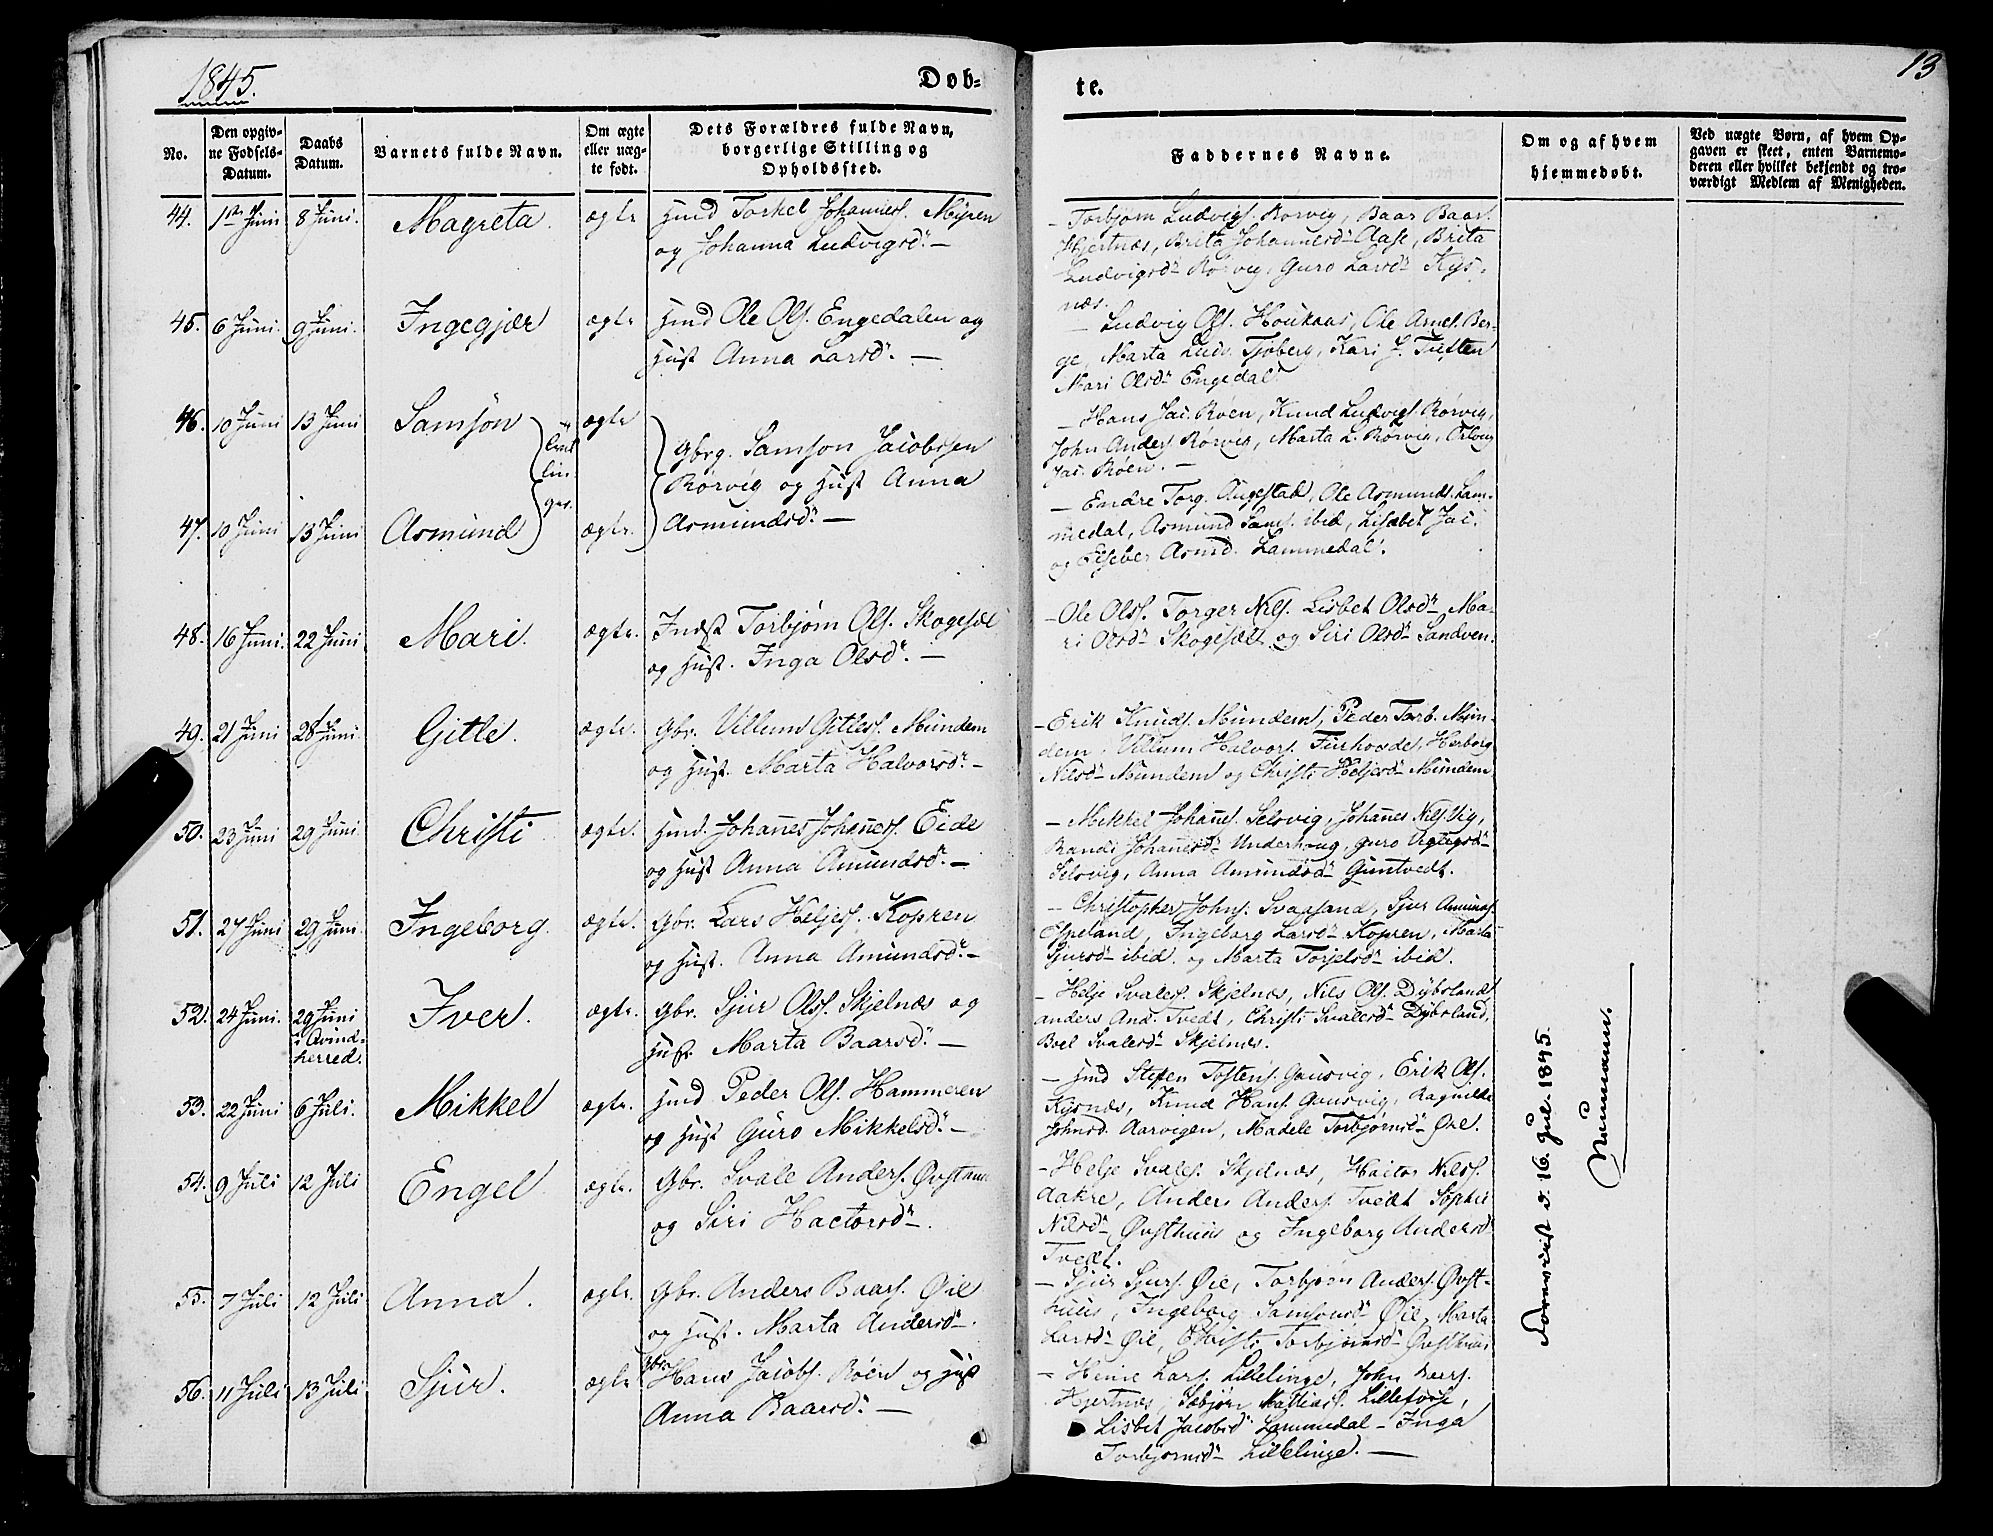 1845.
Døb-
te.
13
No.
Den opgiv-
ne Fødsels-
Datum.
Daabs
Datum.
Barnets fulde Navn.
Om ægte
eller uæg-
te født.
Dets Forældres fulde Navn,
borgerlige Stilling og
Opholdssted.
Faddernes Navne.
Om og af hvem
hjemmedøbt.
Ved uægte Børn, af hvem Op-
gaven er skeet, enten Barnemo-
deren eller hvilket bekjendt og tro-
værdigt Medlem af Menigheden.
44. 1ste Juni 8 Juni. Magreta. ægte Hmd Torkel Johannes. Myren
og Johanna Ludvigsd. —
— Torbjørn Ludvigs. Rørvig, Baar Baars.
Hjertnæs, Brita Johannesd Aase, Brita
Ludvigsd Rørvig, Guro Larsd Kys-
næs.
45. 6 Juni. 9 Juni. Ingegjær ægte Hmd Ole Ols. Engedalen og
Hust Anna Larsd. —
— Ludvig Ols. Houkaas, Ole Arnes. Ber-
ge, Marta Ludv. Tjoberg, Kari J. Tuften
Mari Olsd Engedal.
46. 10 Juni 13 Juni Samson ægte
Tvil
lin-
ger.
Gbrg. Samson Jacobssen
Rørvig og Hust Anna
Asmundsd. —
— Hans Jac. Røen, Knud Ludvigs. Rørvig,
John Anders. Rørvig, Marta L. Rørvig,
Jac. Røen. —
47. 10 Juni 13 Juni Asmund ægte.
— Endre Torg. Augestad, Ole Asmunds. Lam-
medal, Asmund Sams. ibid, Lisabet Jac.
og Asmd. Lammedal.
48. 16 Juni. 22 Juni Mari. ægte. Indst Torbjørn Ols. Skogesæl
og Hust. Inga Olsd. —
— Ole Ols. Torger Nils. Lisbet Olsd Ma-
ri Olsd Skogesæl og Siri Olsd Sandven.
49. 21 Juni 28 Juni Gitle. ægte. Gbr. Villum Gitles. Mundem
og Hust. Marta Halvorsd. —
— Erik Knuds. Mundem, Peder Torb. Mun-
dem, Villum Halvors. Furhovde, Herborg
Nilsd Mundem og Christi Heljesd Mundem
50. 23 Juni 29 Juni Christi ægte. Hmd. Johañes Johañes. Eide
og Hust Anna Amundsd. —
— Mikkel Johañs. Selsvig, Johañes Nils. Vig,
Randi Johañesd Underhaug, Guro
Selsvig, Anna Amundsd Guntvedt.
51. 27 Juni 29 Juni. Ingeborg. ægte. Gbr. Lars Heljes. Kopren
og Hust. Anna Amundsd. —
— Christopher Johns. Svaasand, Sjur Amunds.
Ypeland, Ingeborg Larsd Kopren, Marta
Sjursd ibid. og Marta Torjelsd ibid.
52. 24 Juni. 29 Juni
i Qvind-
herred.
Iver. ægte. Gbr. Sjur Olss. Skjelnæs og
Hust. Marta Baarsd. —
— Helje Svales. Skjelnæs, Nils Ols. Dybsland,
Anders And. Tvedt, Christi Svalesd Dybsland,
Boel Svalesd Skjelnæs.
53. 22 Juni 6 Juli. Mikkel ægte. Hmd Peder Ols. Hammeren
og Hust Guro Mikkelsd. —
— Hmd Steffen Tostens. Gausvig, Erik Ols.
Kysnæs, Knud Hans. Gausvig, Ragnilde
Johnsd. Aarvigen, Madele Torbjørnsd Øie.
54. 9 Juli 12 Juli Engel ægte. Gbr. Svale Anders. Øvsthuus
og Siri Hactorsd —.
— Helje Svales. Skjelnæs, Hactor Nilss.
Aakre, Anders Anders. Tvedt Sophie
Nilsd Øvsthuus og Ingeborg Andersd
Tvedt.
55. 7 Juli 12 Juli Anna. ægte. Gbr. Anders Baars. Øie
og Hust. Marta Andersd —.
— Sjur Sjurs. Øie, Torbjørn Anders. Øvst-
huus, Ingeborg Samsonsd Øie, Marta
Larsd Øie, Christi Torbjørnsd Øvsthuus
56. 11 Juli 13 Juli Sjur. ægte Gbr. Hans Jacobs. Røen og Hust
Anna Baarsd. —
— Heine Lars. Lillelinge, John Baars.
Hjertnæs, Sæbjørn Mathias. Lillefosse,
Lisbet Jacobsd Lammedal — Inga
Torbjørnsd Lillelinge. —
d. 16. Jul. 1845.
Neumann.